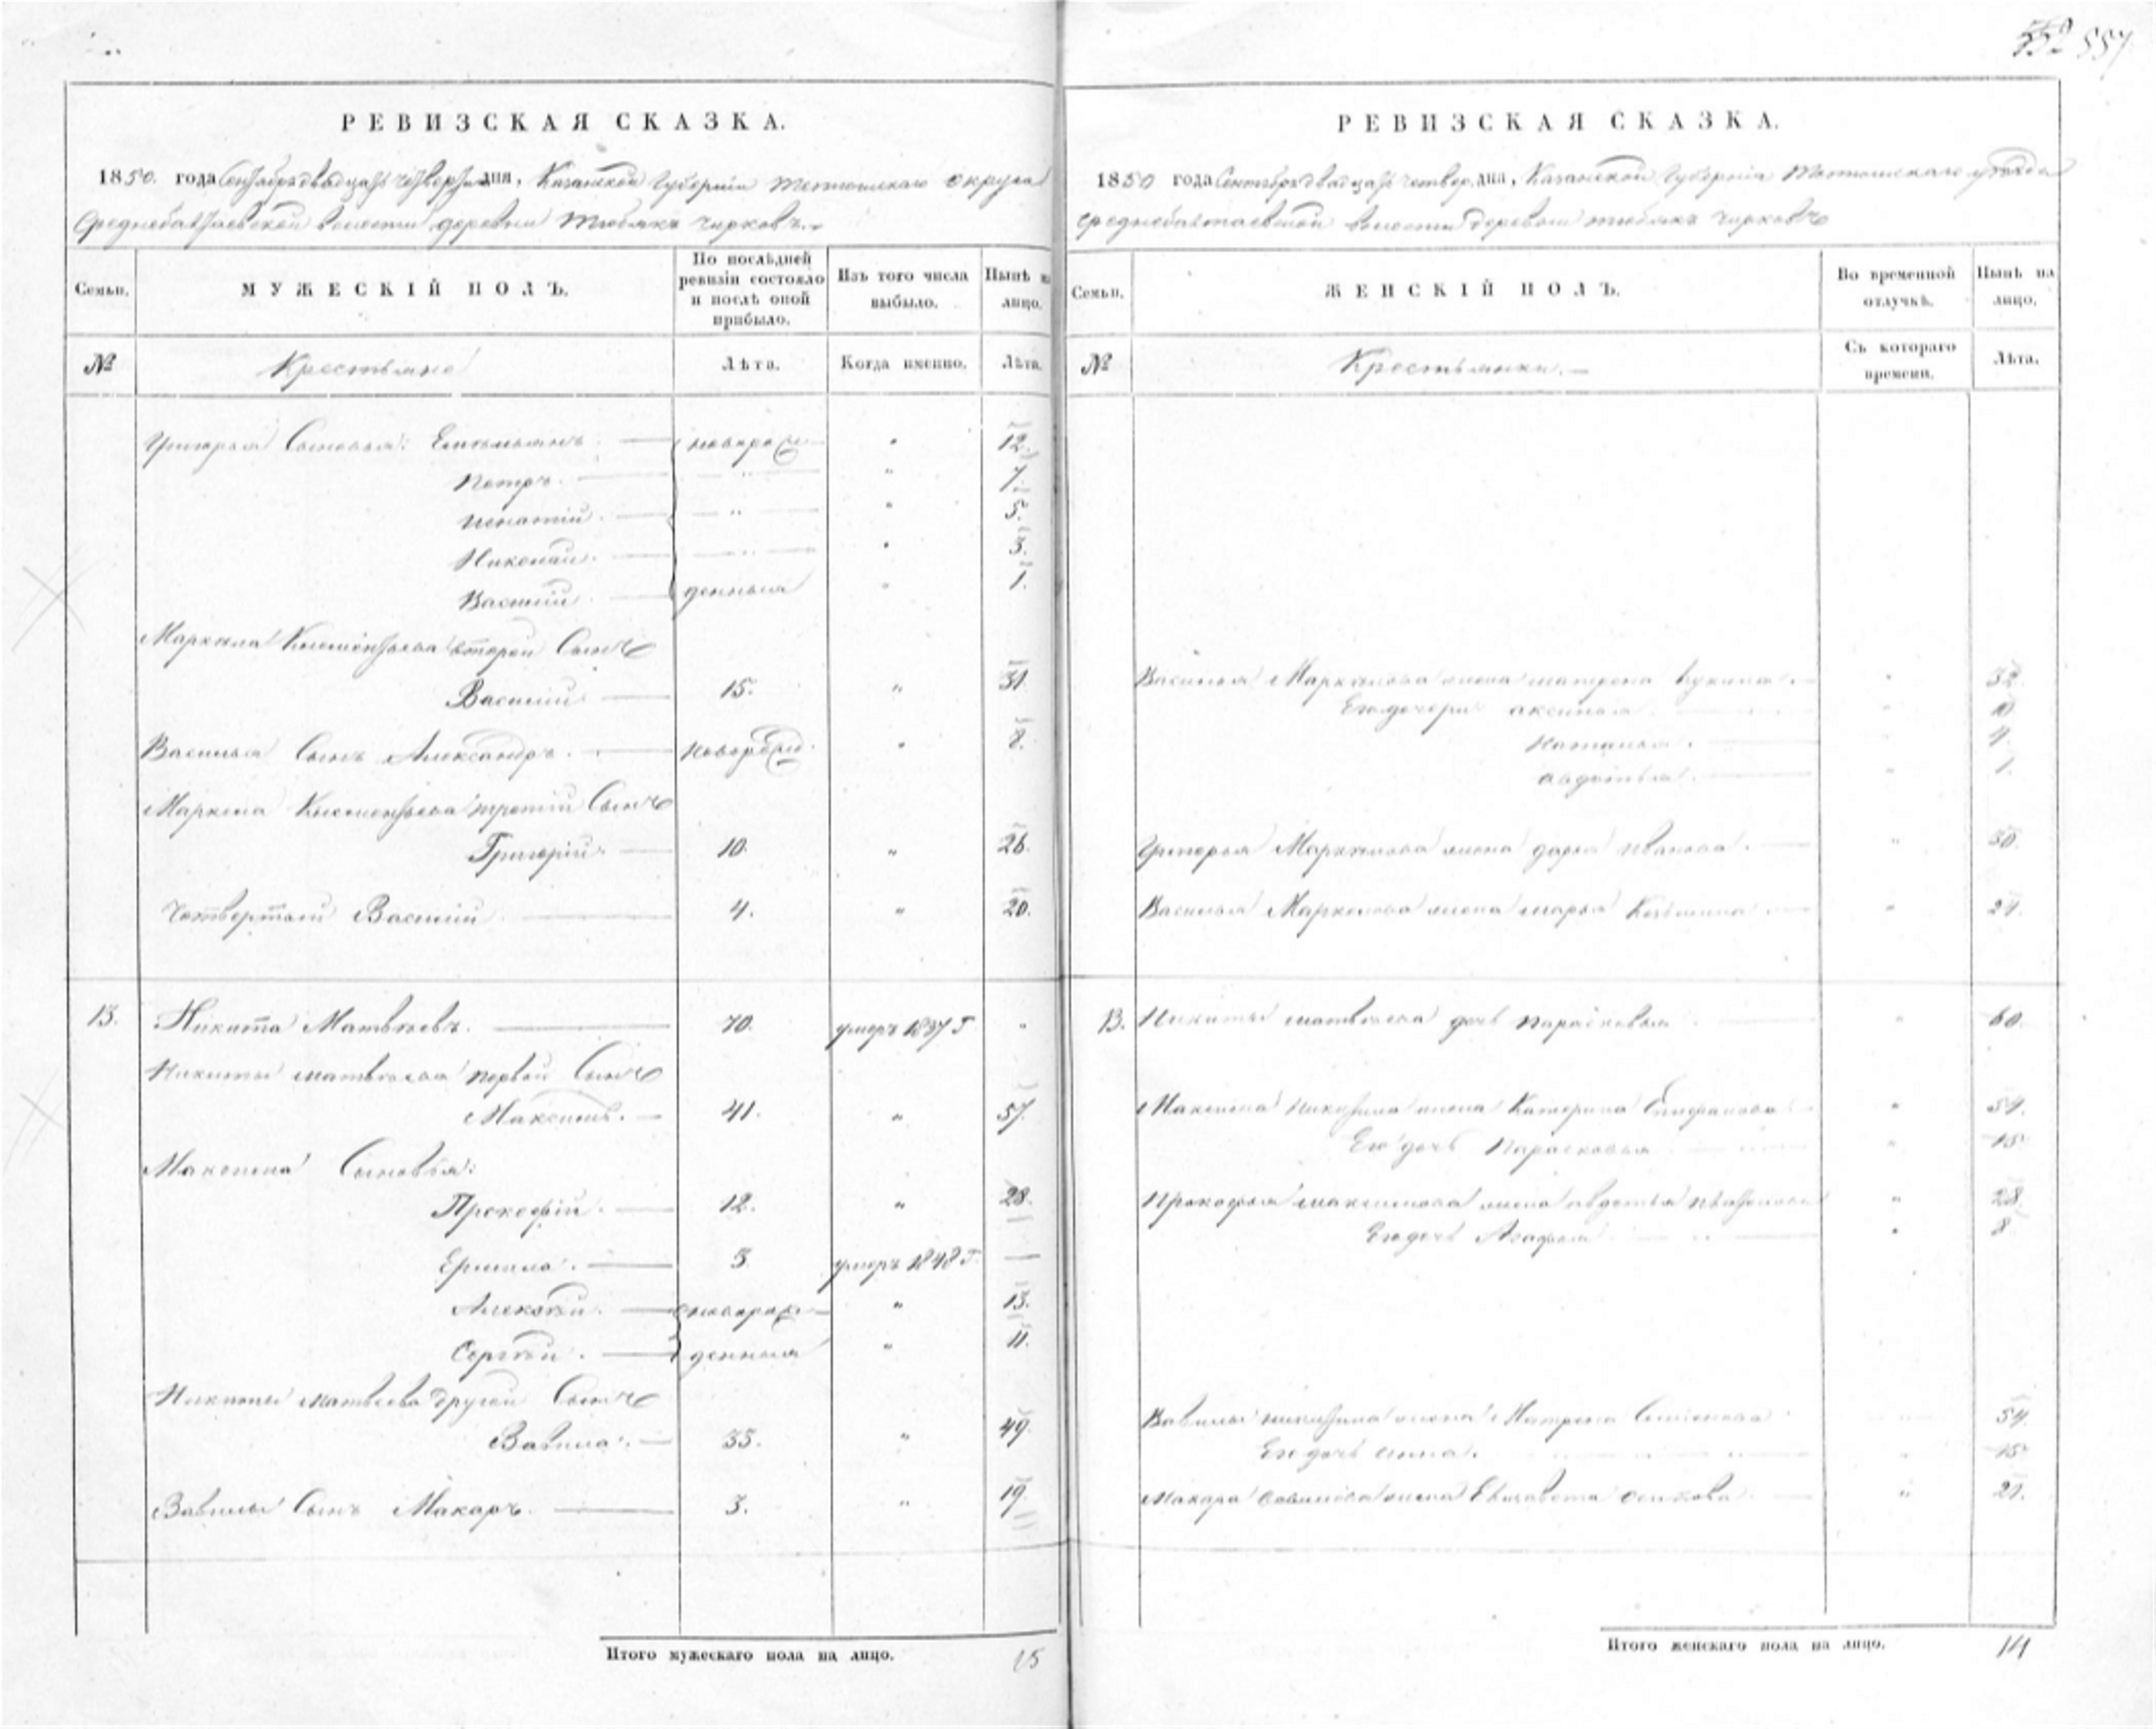 557
РЕВИЗСКАЯ СКАЗКА.
1850. года Сентября двадцать четвертаго дня, Казанской Губерніи Тетюшскаго округа
Среднебалтаевской волости деревни Тюбякъ Чирковъ.
Семьи.
МУЖЕСКІЙ ПОЛЪ.
По послѣдней ревизіи состояло и послѣ оной прибыло.
Изъ того числа выбыло.
Нынѣ на лицо.
№
Крестьяне
Лѣта.
Когда именно.
Лѣта.
Григорья Сыновья: Емельянъ новорож 12.
Петръ. 7.
Игнатій. 5.
Николай. 3.
Василій денныя 1.
Маркела Клементьева второй Сынъ
Василій 15. 31
Василья Сынъ Александръ. новорожд.
Маркела Клементьева третій Сынъ
Григорій 10. 26.
Четвертый Василій 4. 20.
13. Никита Матвѣевъ. 70. умеръ 1837 г.
Никиты Матвѣева первой Сынъ
Максимъ. 41. 57.
Максима Сыновья:
Прокофій. 12. 28.
Ермила. 3 умеръ 1848 г.
Алексѣй. новорож 13.
Сергѣй. денныя 11.
Никиты Матвѣева другой Сынъ
Вавила. 33. 49.
Вавилы Сынъ Макаръ. 3. 19.
Итого мужескаго пола на лицо. 15
РЕВИЗСКАЯ СКАЗКА.
1850 года Сентября двадцать четвер. дня, Казанской Губерніи Тетюшскаго уѣзда
Среднебалтаевской волости деревни Тюбякъ Чирковъ
Семьи.
ЖЕНСКІЙ ПОЛЪ.
Во временной отлучкѣ.
Нынѣ на лицо.
№
Крестьянки.
Съ котораго времени.
Лѣта.
Василья Маркелова жена Матрена Лукина. 32.
Его дочери Аксинья 10
Наталья. 4.
Авдотья. 1.
Григорья Маркелова жена Дарья Иванова. 30.
Василья Маркелова жена Марья Козьмина 21.
13. Никиты Матвѣева дочь Парасковья 60.
Максима Никитина жена Катерина Епифанова 54.
Его дочь Парасковья 15
Прокофья Максимова жена Авдотья 28.
Его дочь Агафья 8
Вавилы Никитина жена Матрена Семенова 54.
Его дочь Анна. 15
Макара Вавилова жена Елизавета Осипова 21.
Итого женскаго пола на лицо. 14